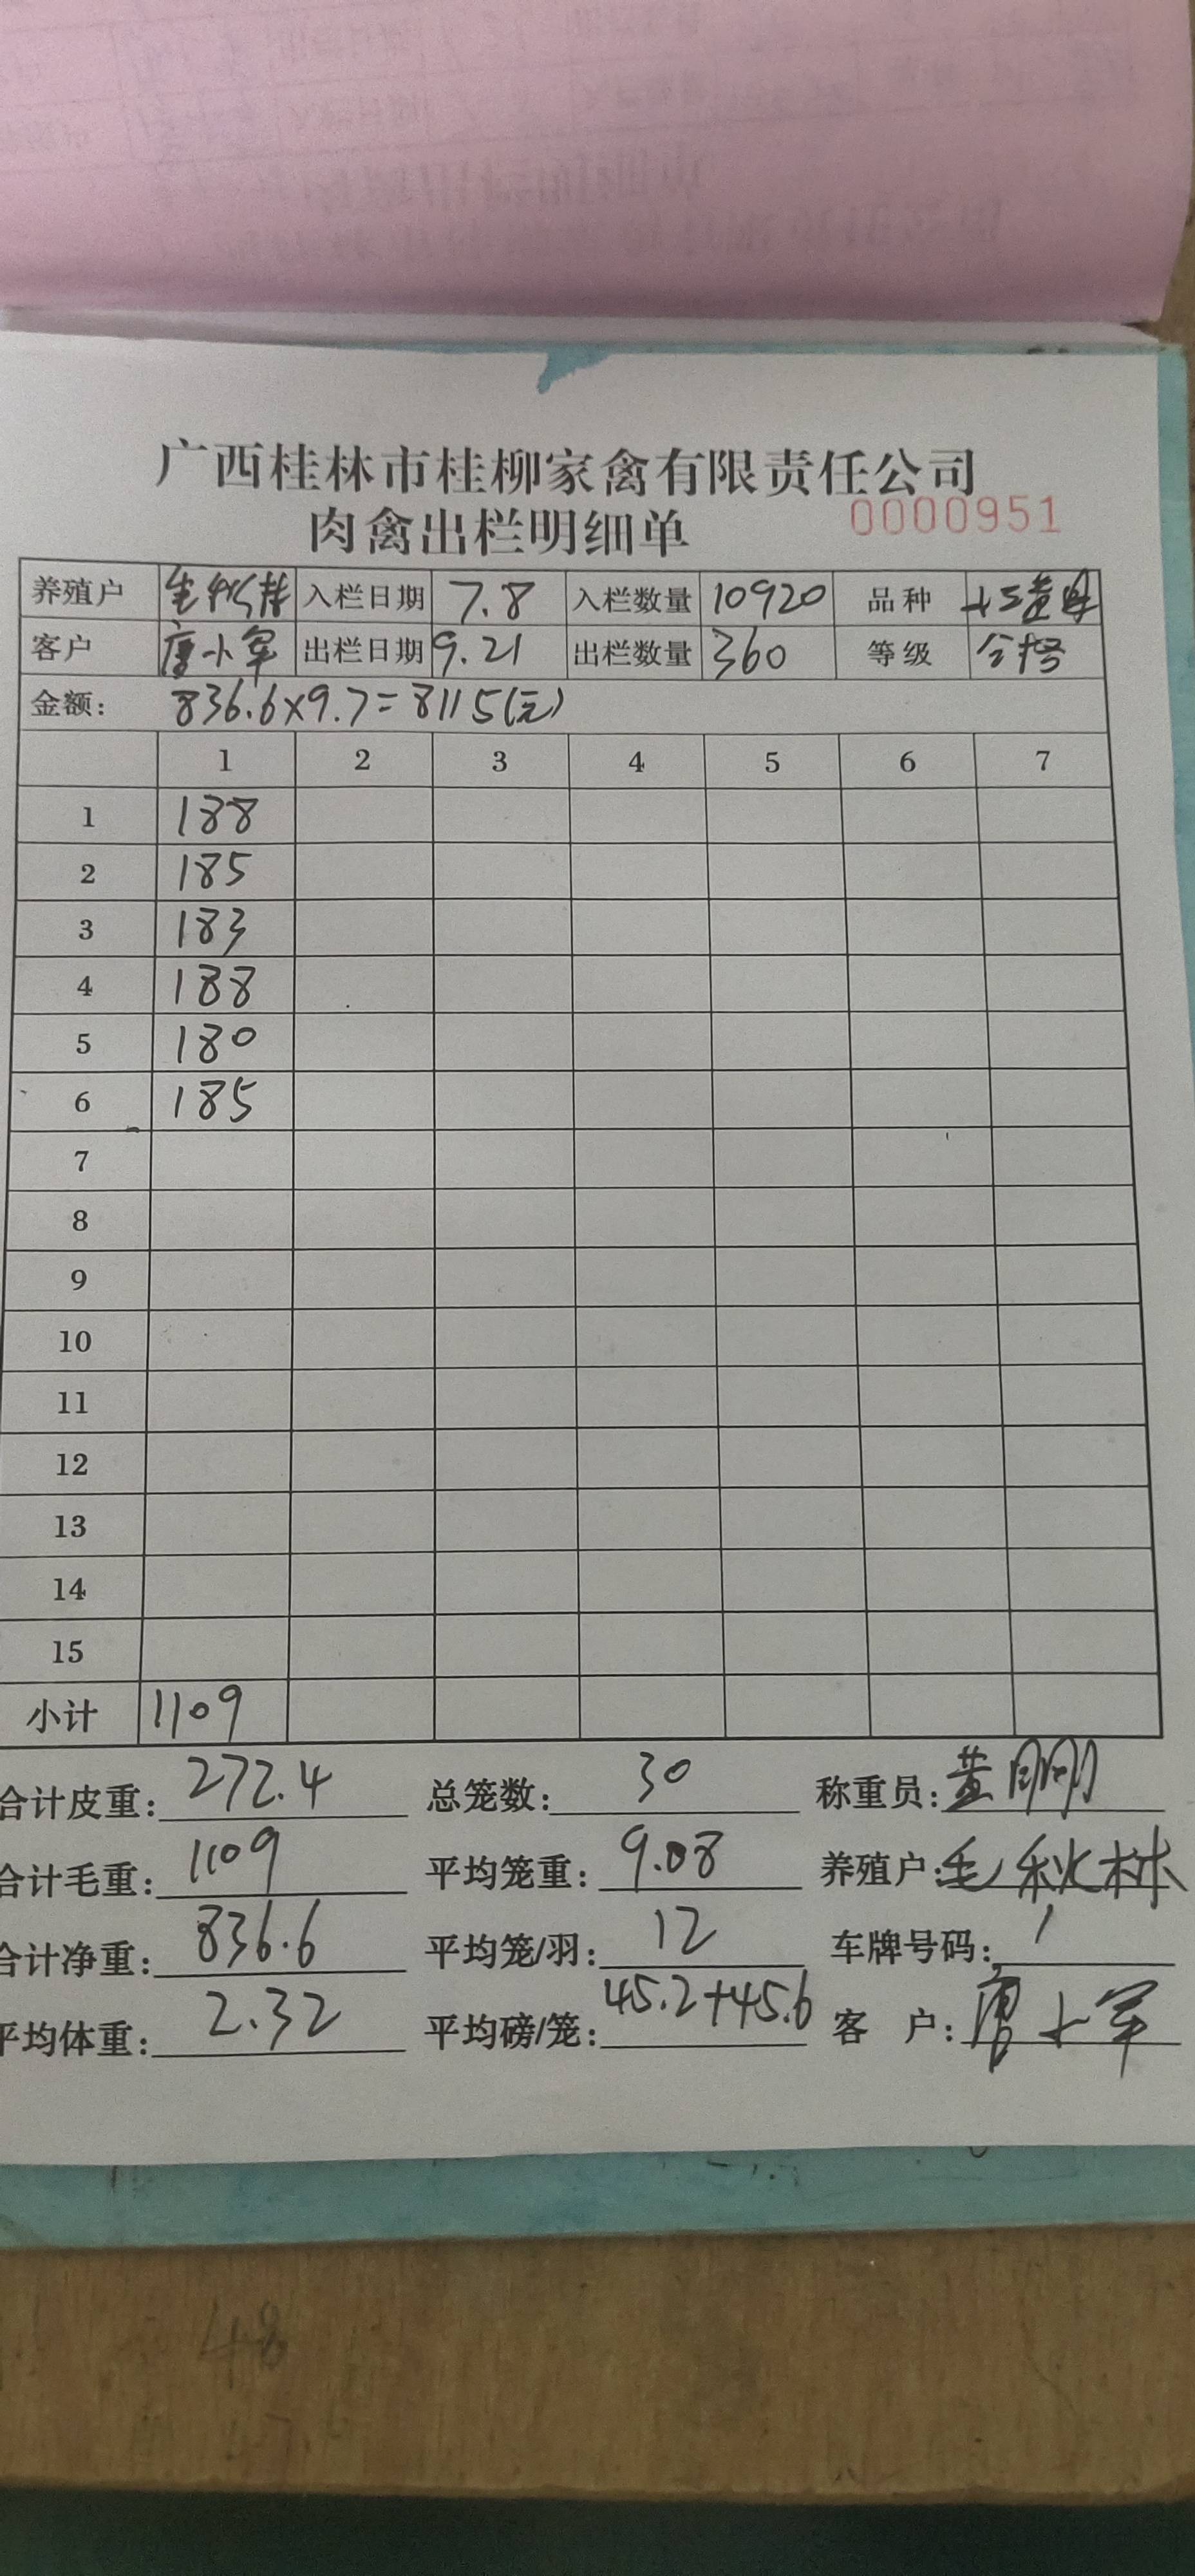 广西桂林市桂柳家禽有限责任公司
肉禽出栏明细单 0000951
养殖户 毛秋林 入栏日期 7.8 入栏数量 10920 品种
客户 唐小军 出栏日期 9.21 出栏数量 360 等级 合格
金额: 836.6×9.7=8115(元)
1 2 3 4 5 6 7
1 188
2 185
3 183
4 188
5 180
6 185
7
8
9
10
11
12
13
14
15
小计 1109
合计皮重: 272.4 总笼数: 30 称重员: 黄刚刚
合计毛重: 1109 平均笼重: 9.08 养殖户: 毛秋林
合计净重: 836.6 平均笼/羽: 12 车牌号码: /
平均体重: 2.32 平均磅/笼: 45.2+45.6 客 户: 唐小军
48